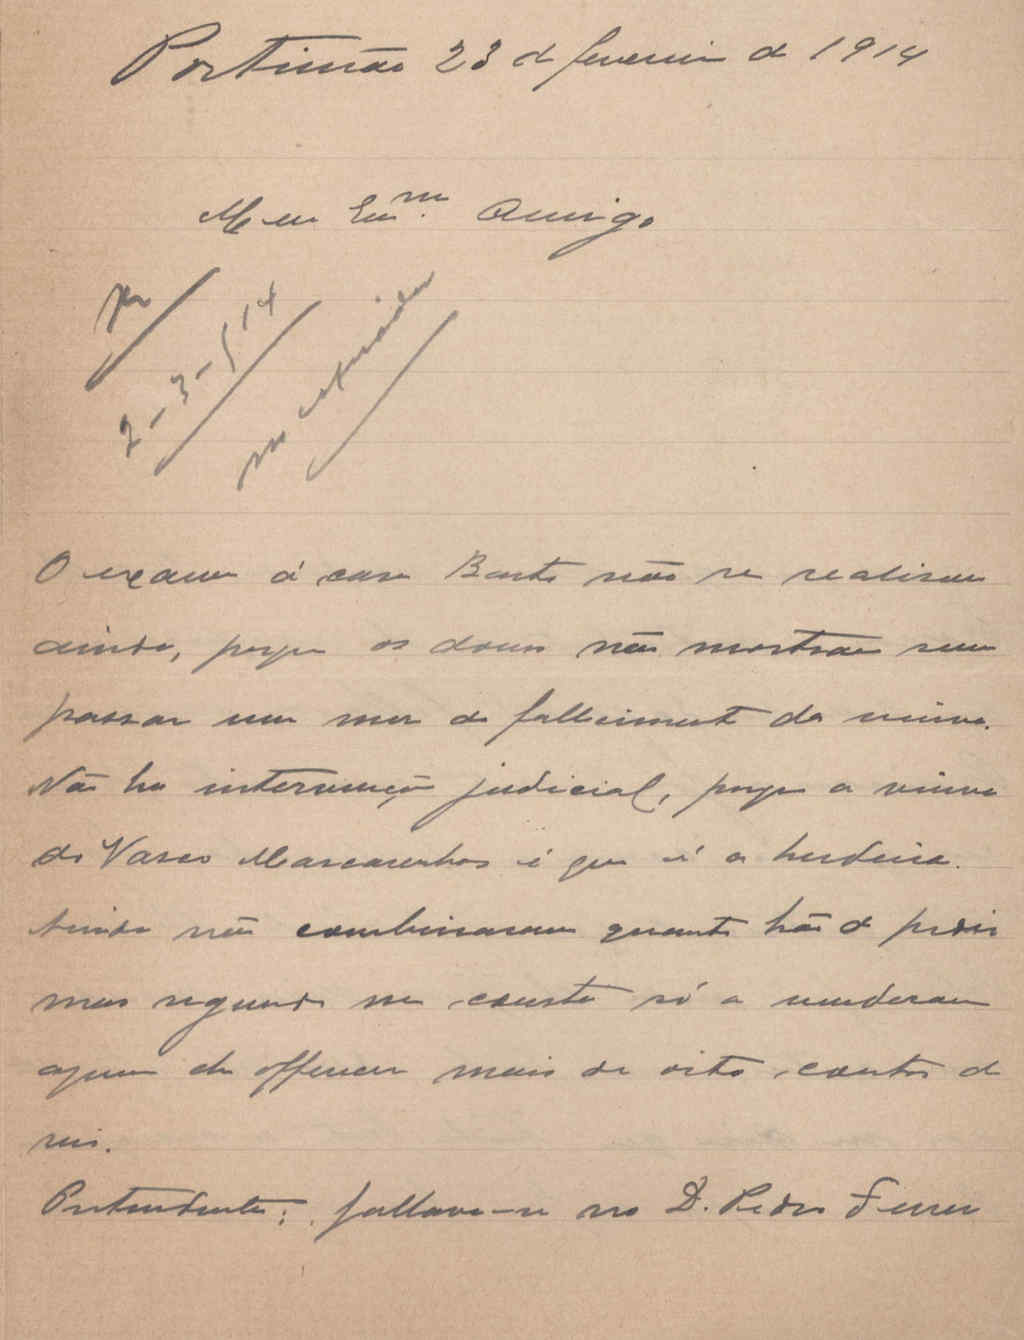 Portimão 23 de fevereiro de 1914
Meu Exmº. Amigo
2-3-914
O exame á casa Bast não se realisou
ainda, porque os donos não mostram sem
passar um mez do fallecimento da viuva.
Não ha intervenção judicial, porque a viuva
do Vasco Mascarenhas é que é a herdeira.
Ainda não combinaram quanto hão de pedir
mas segundo me consta só a venderam
a quem der offerecer mais de oito contos de
reis.
Pretendentes: fallava-se no D. Pedro Ferrer